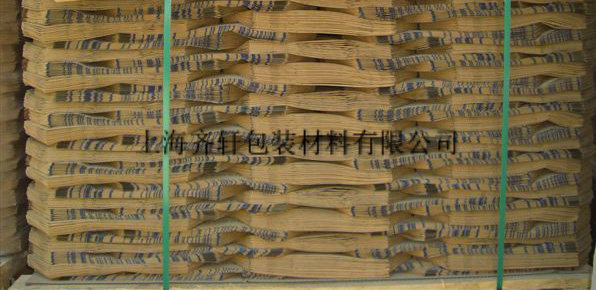 上海齐轩包装材料有限公司